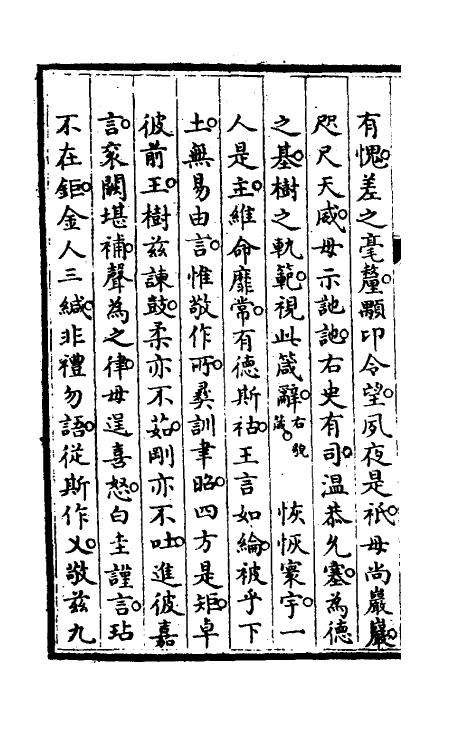 有愧差之毫釐顒卬令望夙夜是祗毋尚嚴嚴
咫尺天威毋示訑訑右史有司溫恭允塞為德
之基樹之軌範視此箴辭右貌箴 恢恢寰宇一
人是主維命靡常有德斯祜王言如綸被乎下
土無易由言惟敬作所彞訓聿昭四方是矩卓
彼前王樹茲諫鼓柔亦不茹剛亦不吐進彼嘉
言袞闕堪補聲為之律毋逞喜怒白圭謹言玷
不在鉅金人三緘非禮勿語從斯作乂敬茲九